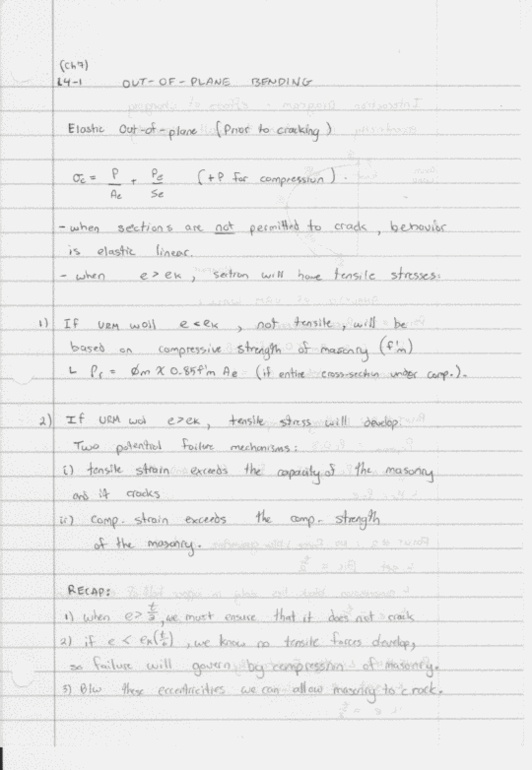 (Ch 7)
L4-1 OUT-OF-PLANE BENDING
Elastic Out-of-plane (Prior to cracking)
σc = P/Ae + Pe/Se (+P for compression).
- when sections are not permitted to crack, behavior
is elastic linear.
- when e > ek, section will have tensile stresses.
1) If URM wall e < ek, not tensile, will be
based on compressive strength of masonry (f'm)
L Pr = Øm X 0.85f'm Ae (if entire cross-section under comp.).
2) If URM wall e > ek, tensile stress will develop.
Two potential failure mechanisms:
i) tensile strain exceeds the capacity of the masonry
and it cracks
ii) comp. strain exceeds the comp. strength
of the masonry.
RECAP:
1) when e > t/3, we must ensure that it does not crack
2) if e < ek(t/6), we know no tensile forces develop,
so failure will govern by compression of masonry.
3) B/w these eccentricities we can allow masonry to crack.